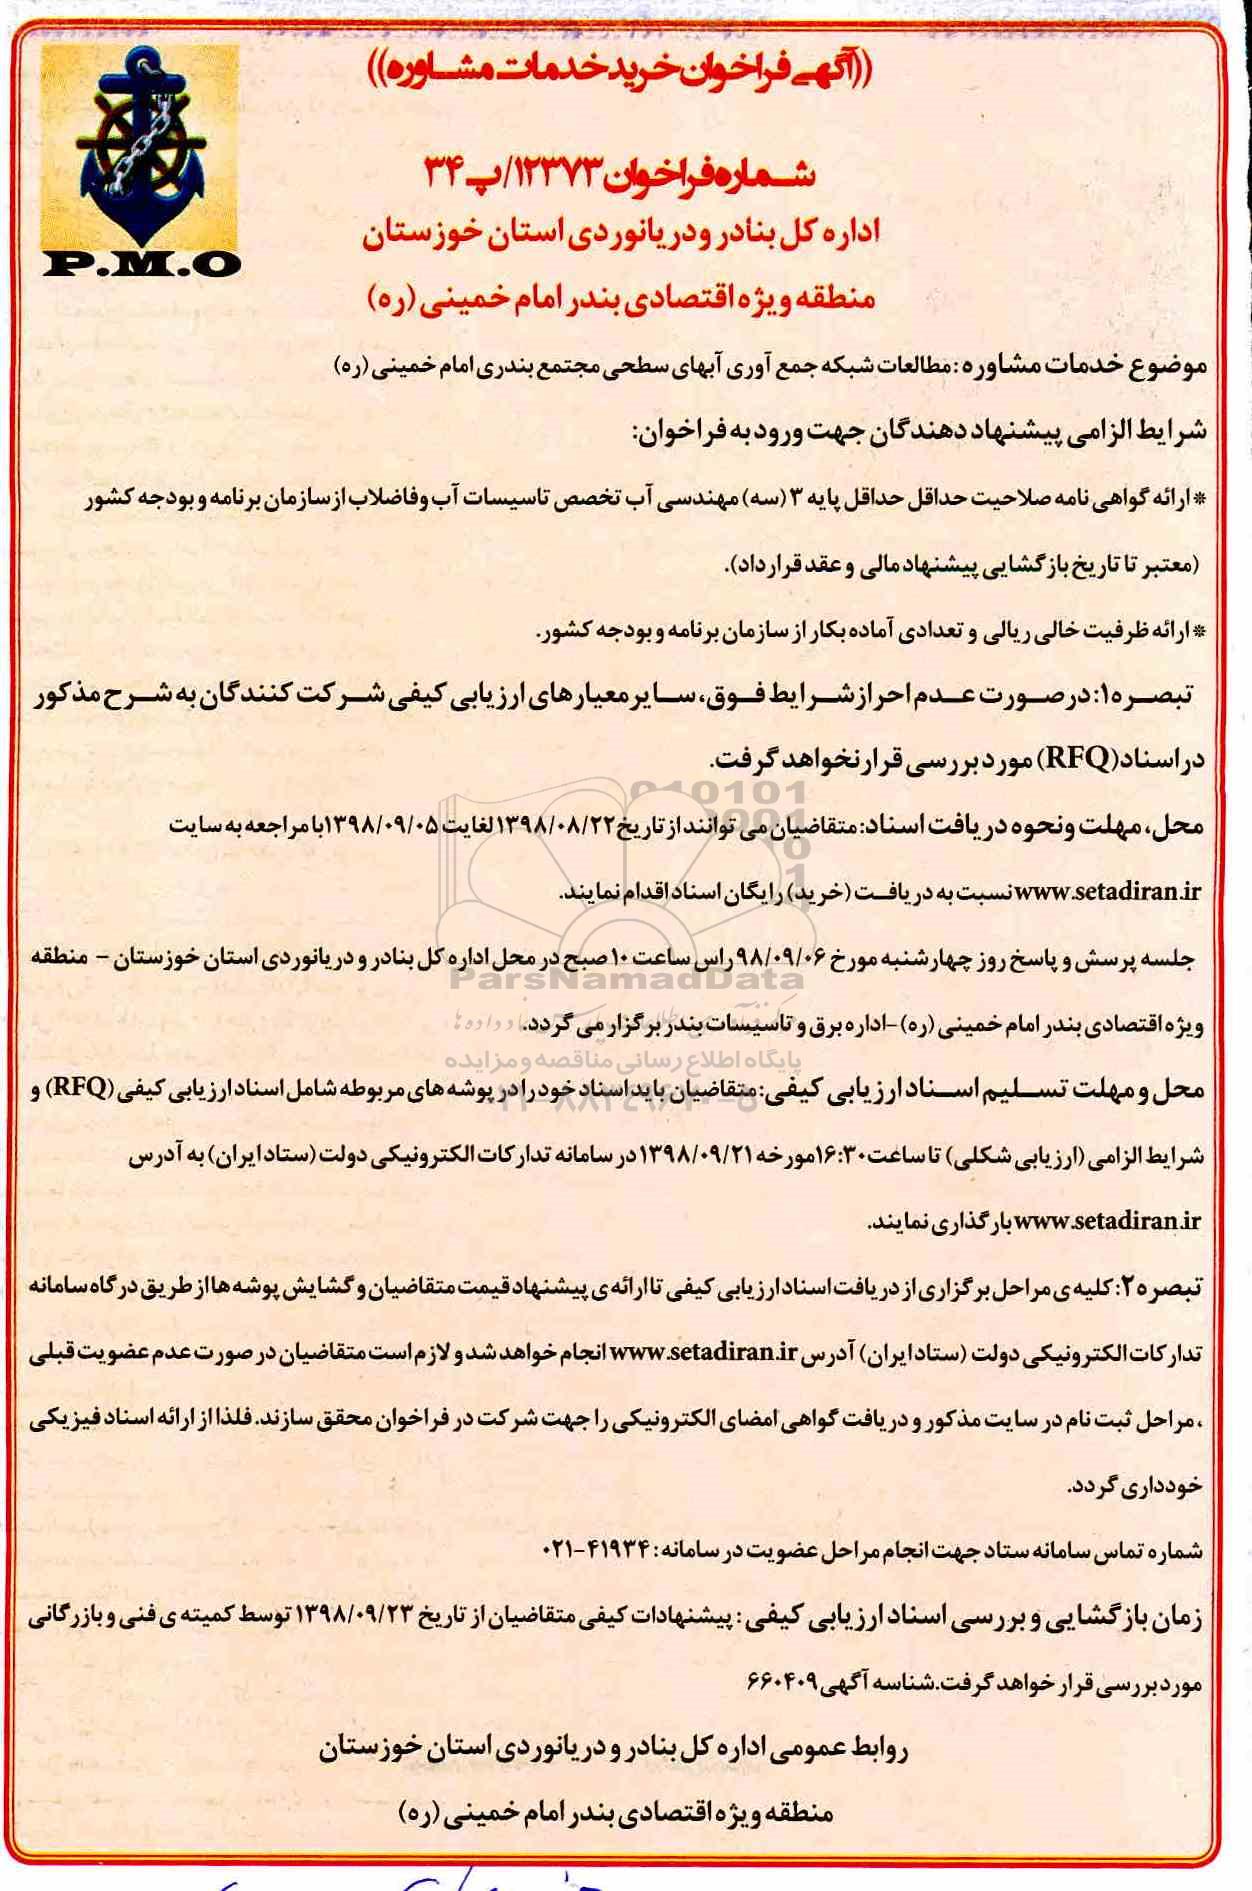 ((آگهی فراخوان خرید خدمات مشاوره))
شماره فراخوان ۱۲۳۷۳/پ ۳۴
اداره کل بنادر و دریانوردی استان خوزستان
P.M.O
منطقه ویژه اقتصادی بندر امام خمینی (ره)
موضوع خدمات مشاوره: مطالعات شبکه جمع آوری آبهای سطحی مجتمع بندری امام خمینی (ره)
شرایط الزامی پیشنهاد دهندگان جهت ورود به فراخوان:
* ارائه گواهی نامه صلاحیت حداقل حداقل پایه ۳ (سه) مهندسی آب تخصص تاسیسات آب وفاضلاب از سازمان برنامه و بودجه کشور
(معتبر تا تاریخ بازگشایی پیشنهاد مالی و عقد قرارداد).
* ارائه ظرفیت خالی ریالی و تعدادی آماده بکار از سازمان برنامه و بودجه کشور.
تبصره۱: در صورت عدم احراز شرایط فوق، سایر معیارهای ارزیابی کیفی شرکت کنندگان به شرح مذکور
در اسناد (RFQ) مورد بررسی قرار نخواهد گرفت.
010101
محل، مهلت ونحوه دریافت اسناد: متقاضیان می توانند از تاریخ ۱۳۹۸/۰۸/۲۲ لغایت ۱۳۹۸/۰۹/۰۵ با مراجعه به سایت
www.setadiran.ir نسبت به دریافت (خرید) رایگان اسناد اقدام نمایند.
جلسه پرسش و پاسخ روز چهارشنبه مورخ ۹۸/۰۹/۰۶ راس ساعت ۱۰ صبح در محل اداره کل بنادر و دریانوردی استان خوزستان - منطقه
ParsNamadData
ویژه اقتصادی بندر امام خمینی (ره) -اداره برق و تاسیسات بندر برگزار می گردد.
پایگاه اطلاع رسانی مناقصه و مزایده
محل و مهلت تسلیم اسناد ارزیابی کیفی: متقاضیان باید اسناد خود را در پوشه های مربوطه شامل اسناد ارزیابی کیفی (RFQ) و
شرایط الزامی (ارزیابی شکلی) تا ساعت ۱۶:۳۰ مورخه ۱۳۹۸/۰۹/۲۱ در سامانه تدارکات الکترونیکی دولت (ستاد ایران) به آدرس
www.setadiran.ir بارگذاری نمایند.
تبصره ۲: کلیه ی مراحل برگزاری از دریافت اسناد ارزیابی کیفی تا ارائه ی پیشنهاد قیمت متقاضیان و گشایش پوشه ها از طریق درگاه سامانه
تدارکات الکترونیکی دولت (ستاد ایران) آدرس www.setadiran.ir انجام خواهد شد و لازم است متقاضیان در صورت عدم عضویت قبلی
، مراحل ثبت نام در سایت مذکور و دریافت گواهی امضای الکترونیکی را جهت شرکت در فراخوان محقق سازند. فلذا از ارائه اسناد فیزیکی
خودداری گردد.
شماره تماس سامانه ستاد جهت انجام مراحل عضویت در سامانه: ۴۱۹۳۴-۰۲۱
زمان بازگشایی و بررسی اسناد ارزیابی کیفی: پیشنهادات کیفی متقاضیان از تاریخ ۱۳۹۸/۰۹/۲۳ توسط کمیته ی فنی و بازرگانی
مورد بررسی قرار خواهد گرفت. شناسه آگهی ۶۶۰۴۰۹
روابط عمومی اداره کل بنادر و دریانوردی استان خوزستان
منطقه ویژه اقتصادی بندر امام خمینی (ره)